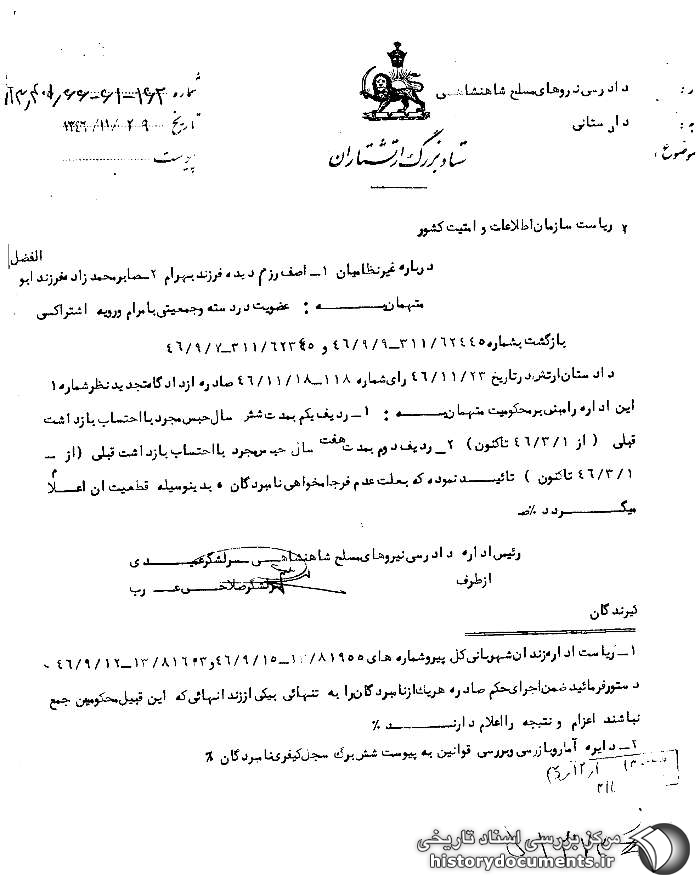 دادرسی نیروهای مسلح شاهنشاهی
دادستانی
موضوع :
ستاد بزرگ ارتشتاران
شماره
تاریخ ۱۳۴۶/۱۱/۲۹
پیوست
ریاست سازمان اطلاعات و امنیت کشور
درباره غیرنظامیان ۱ـ اصف رزم دیده فرزند بهرام ۲ـ صابر محمد زاده فرزند ابو الفضل
متهمان بـه : عضویت در دسته و جمعیتی با مرام و رویه اشتراکی
بازگشت بشماره ۳۱۱/۶۲۴۴۵ـ۴۶/۹/۹ و ۳۱۱/۶۲۳۴۵ـ۴۶/۹/۷
دادستان ارتش در تاریخ ۴۶/۱۱/۲۳ رای شماره ۱۱۸ـ۴۶/۱۱/۱۸ صادره از دادگاه تجدید نظر شماره ۱
این اداره را مبنی بر محکومیت متهمان بـه : ۱ـ ردیف یکم بمدت شش سال حبس مجرد با احتساب بازداشت
قبلی ( از ۴۶/۳/۱ تاکنون ) ۲ـ ردیف دوم بمدت هفت سال حبس مجرد با احتساب بازداشت قبلی ( از ـ
۴۶/۳/۱ تاکنون ) تائیـد نموده که بعلت عدم فرجامخواهی نامبردگان بدینوسیله قطعیت ان اعـلام
میگـردد %
رئیس اداره دادرسی نیروهای مسلح شاهنشاهـی سرلشگر عمیـدی
از طرف سرلشگر صلاحـی عـرب
گیرندگان
۱ـ ریاست اداره زندان شهربانی کل پیرو شماره های
دستور فرمائید ضمن اجرای حکم صادره هریک از نامبردگان را به تنهائی بیکی از زندانهائی که این قبیل محکومین جمع
نباشند اعزام و نتیجه را اعلام دارنـد %
۲ـ دایره آمار و بازرسی و بررسی قوانین به پیوست شش برگ سجل کیفری نامبردگان %
مرکز بررسی اسناد تاریخی
historydocuments.ir